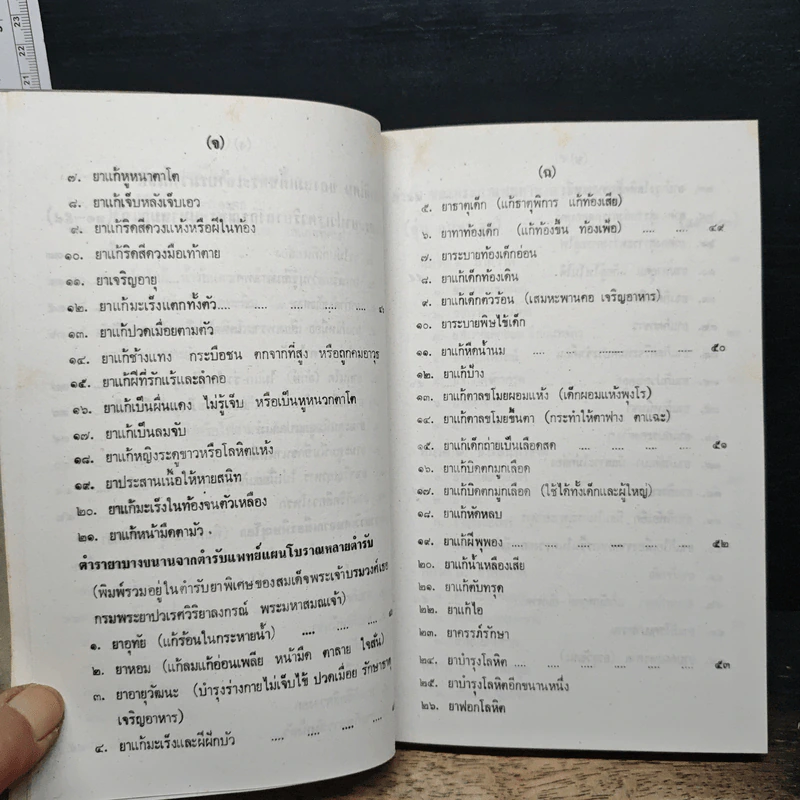 (จ)
๗. ยาแก้หูหนาตาโต
๘. ยาแก้เจ็บหลังเจ็บเอว
๙. ยาแก้ริดสีดวงแห้งหรือผีในท้อง
๑๐. ยาแก้ริดสีดวงมือเท้าตาย
๑๑. ยาเจริญอายุ
๑๒. ยาแก้มะเร็งแตกทั้งตัว.... .... .... ....
๑๓. ยาแก้ปวดเมื่อยตามตัว
๑๔. ยาแก้ช้างแทง กระบือชน ตกจากที่สูง หรือถูกคมอาวุธ
๑๕. ยาแก้ฝีที่รักแร้และลำคอ
๑๖. ยาแก้เป็นผื่นแดง ไม่รู้เจ็บ หรือเป็นหูหนวกตาโต
๑๗. ยาแก้เป็นลมจับ
๑๘. ยาแก้หญิงระดูขาวหรือโลหิตแห้ง
๑๙. ยาประสานเนื้อให้หายสนิท
๒๐. ยาแก้มะเร็งในท้องจนตัวเหลือง
๒๑. ยาแก้หน้ามืดตามัว
ตำรายาบางขนานจากตำรับแพทย์แผนโบราณหลายตำรับ
(พิมพ์รวมอยู่ในตำรับยาพิเศษของสมเด็จพระเจ้าบรมวงศ์เธอ
กรมพระยาปวเรศวิริยาลงกรณ์ พระมหาสมณเจ้า)
๑. ยาอุทัย (แก้ร้อนในกระหายน้ำ) .... .... ....
๒. ยาหอม (แก้ลมแก้อ่อนเพลีย หน้ามืด ตาลาย ใจสั่น)
๓. ยาอายุวัฒนะ (บำรุงร่างกายไม่เจ็บไข้ ปวดเมื่อย รักษาธาตุ
เจริญอาหาร)
๔. ยาแก้มะเร็งและฝีฝักบัว .... .... .... ....
(ฉ)
๕. ยาธาตุเด็ก (แก้ธาตุพิการ แก้ท้องเสีย)
๖. ยาทาท้องเด็ก (แก้ท้องขึ้น ท้องเฟ้อ) .... .... ๔๙
๗. ยาระบายท้องเด็กอ่อน
๘. ยาแก้เด็กท้องเดิน
๙. ยาแก้เด็กตัวร้อน (เสมหะพานคอ เจริญอาหาร)
๑๐. ยาระบายพิษไข้เด็ก
๑๑. ยาแก้หืดน้ำนม .... .... .... .... .... ๕๐
๑๒. ยาแก้ป้าง
๑๓. ยาแก้ตาลขโมยผอมแห้ง (เด็กผอมแห้งพุงโร)
๑๔. ยาแก้ตาลขโมยขึ้นตา (กระทำให้ตาฟาง ตาแฉะ)
๑๕. ยาแก้เด็กถ่ายเป็นเลือดสด .... .... .... .... ๕๑
๑๖. ยาแก้บิดตกมูกเลือด
๑๗. ยาแก้บิดตกมูกเลือด (ใช้ได้ทั้งเด็กและผู้ใหญ่)
๑๘. ยาแก้หัดหลบ
๑๙. ยาแก้ฝีพุพอง .... .... .... .... .... ๕๒
๒๐. ยาแก้น้ำเหลืองเสีย
๒๑. ยาแก้ตับทรุด
๒๒. ยาแก้ไอ
๒๓. ยาครรภ์รักษา
๒๔. ยาบำรุงโลหิต .... .... .... .... .... ๕๓
๒๕. ยาบำรุงโลหิตอีกขนานหนึ่ง
๒๖. ยาฟอกโลหิต